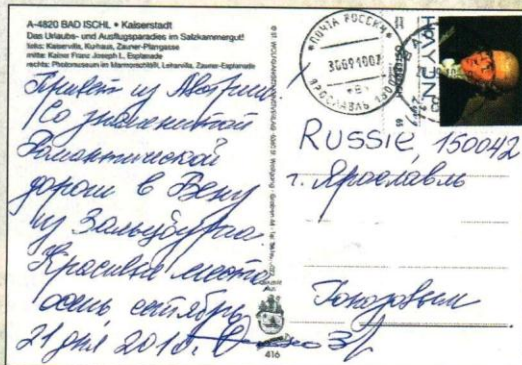 A-4820 BAD ISCHL • Kaiserstadt
Das Urlaubs- und Ausflugsparadies im Salzkammergut!
links: Kaiservilla, Kurhaus, Zauner-Pfarrgasse
mitte: Kaiser Franz Joseph I., Esplanade
rechts: Photomuseum im Marmorschlößl, Leharvilla, Zauner-Esplanade
Привет из Австрии
Со знаменитой
Романтической
дороги в Вену
из Зальцбурга.
Красивые места
осень сентябрь
21 дня 2010г.
416
ПОЧТА РОССИИ
ЯРОСЛАВЛЬ
3009101007
HAYDN
RUSSIE, 150042
г. Ярославль